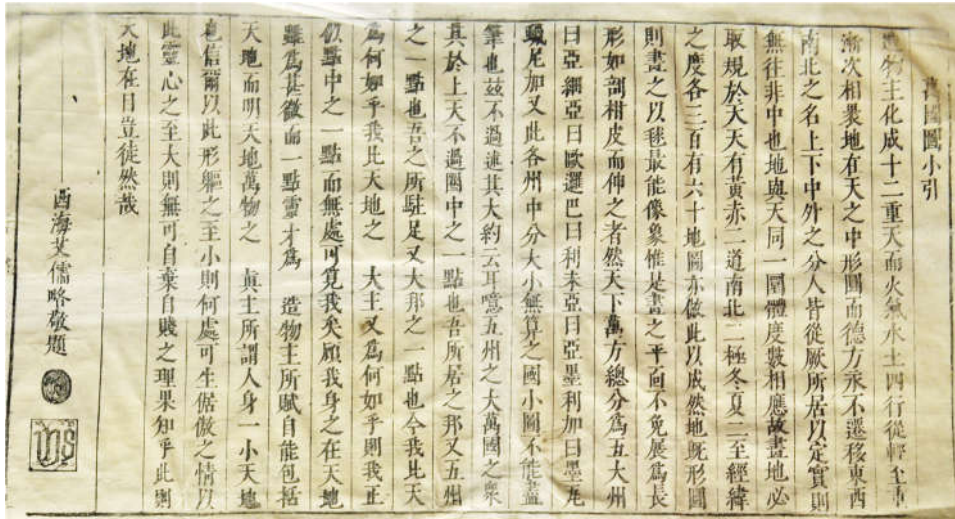 萬國圖小引
造物主化成十二重天而火氣水土四行從輕至重
漸次相裹地在天之中形圓而德方永不遷移東西
南北之名上下中外之分人皆從厥所居以定實則
無往非中也地與天同一圜體度數相應故畫地必
取規於天天有黃赤二道南北二極冬夏二至經緯
之度各三百有六十地圖亦倣此以成然地既形圓
則畫之以毬最能像象惟是畫之平面不免展爲長
形如剖柑皮而伸之者然天下萬方總分爲五大州
曰亞細亞曰歐邏巴曰利未亞曰亞墨利加曰墨瓦
蠟尼加又此各州中分大小無算之國小圖不能盡
筆也茲不過述其大約云耳噫五州之大萬國之衆
其於上天不過圜中之一點也吾所居之邦又五州
之一點也吾之所駐足又大邦之一點也今我比天
爲何如乎我比天地之 大主又爲何如乎則我正
似點中之一點而無處可覓我矣顧我身之在天地
雖爲甚微而一點靈才爲 造物主所賦自能包括
天地而明天地萬物之 眞主所謂人身一小天地
也信爾以此形軀之至小則何處可生倨傲之情以
此靈心之至大則無可自棄自賤之理果知乎此則
天地在目豈徒然哉
西海艾儒略敬題